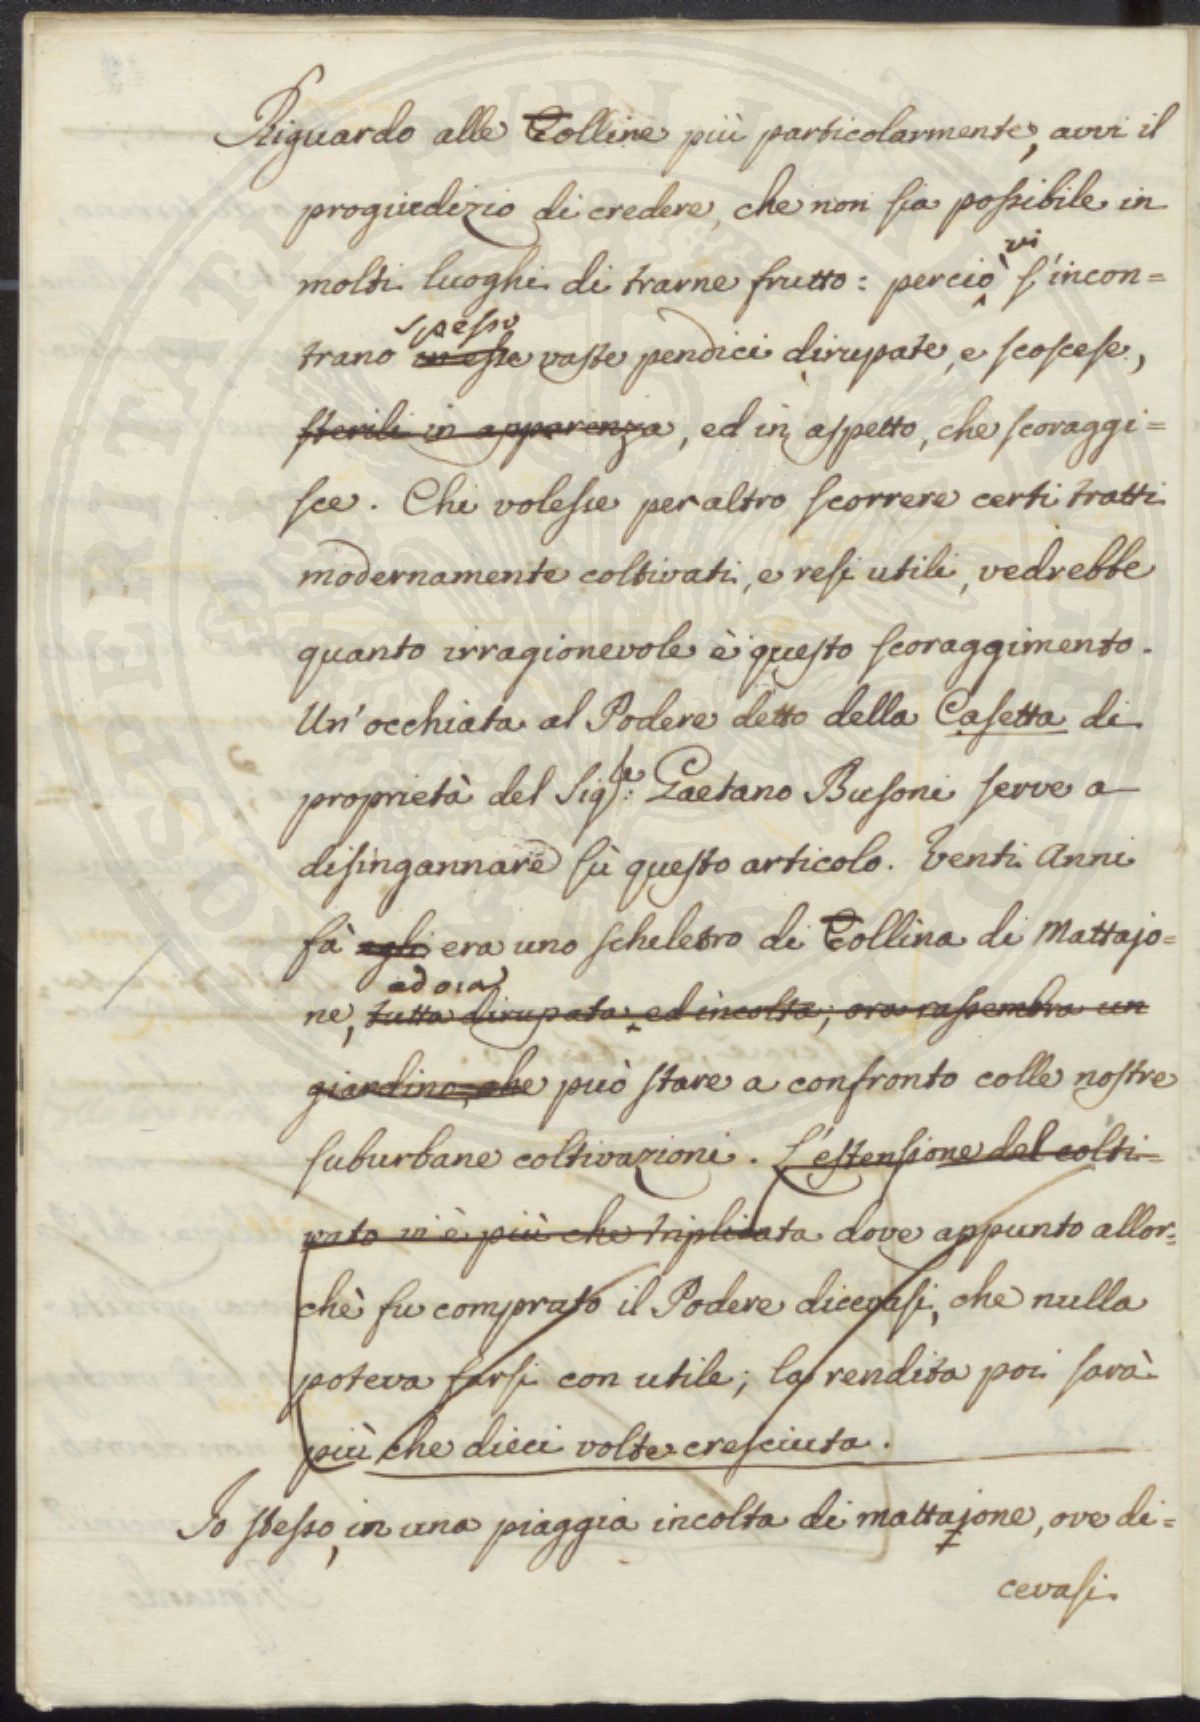 Riguardo alle Colline più particolarmente, avvi il
progiudizio di credere, che non sia possibile in
molti luoghi di trarne frutto: perciò vi s'incon=
trano in esse spesso vaste pendici dirupate, e scoscese,
sterili in apparenza, ed in aspetto, che scoraggi=
sce. Chi volesse per altro scorrere certi tratti
modernamente coltivati, e resi utili, vedrebbe
quanto irragionevole è questo scoraggimento.
Un'occhiata al Podere detto della Casetta di
proprietà del Sig.re Gaetano Busoni serve a
disingannare sù questo articolo. Venti Anni
fà egli era uno scheletro di Collina di Mattajo=
ne, ed ora tutta dirupata, ed incolta; ora rassembra un
giardino, che può stare a confronto colle nostre
suburbane coltivazioni. L'estensione del colti=
vato vi è più che triplicata dove appunto allor=
chè fu comprato il Podere dicevasi, che nulla
poteva farsi con utile; la rendita poi sarà
più che dieci volte cresciuta.
Io stesso, in una piaggia incolta di mattajone, ove di=
cevasi